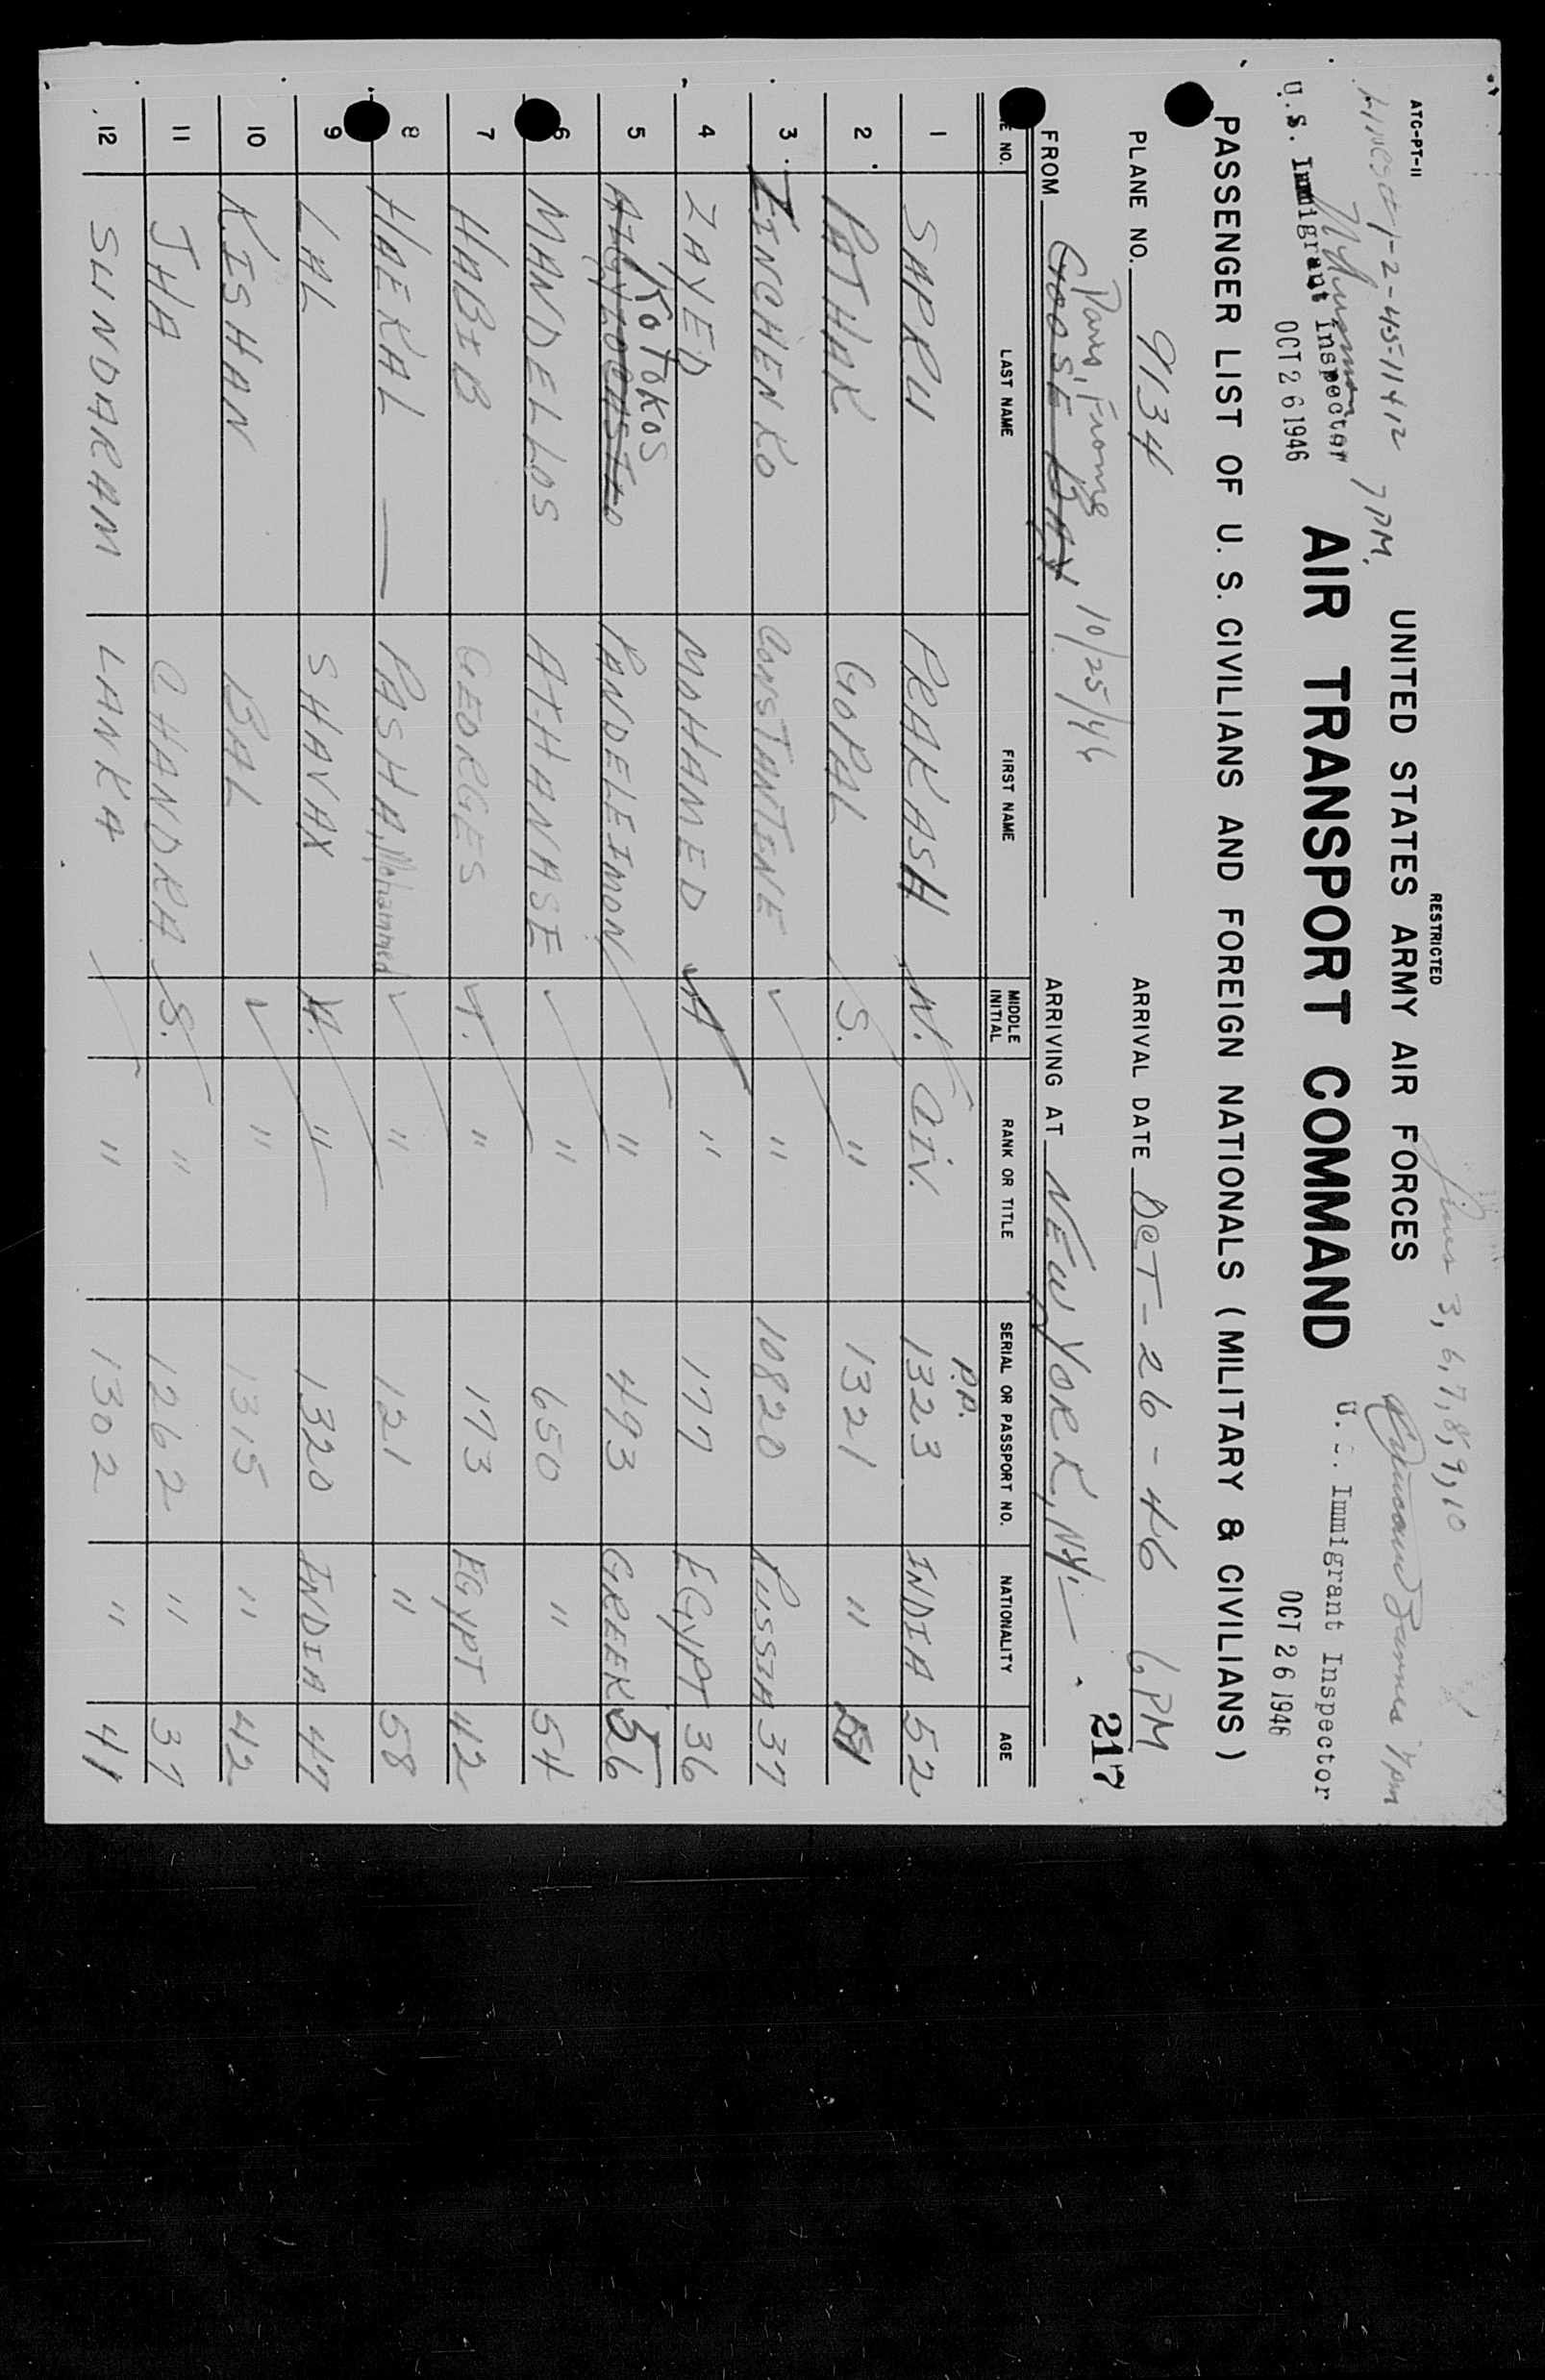 RESTRICTED
Lines 3, 6, 7, 8, 9, 10
ATC-PT-11
UNITED STATES ARMY AIR FORCES
Lines 1-2-4-5-11 & 12 7 PM.
7 pm
U.S. Immigrant Inspector
AIR TRANSPORT COMMAND
U. S. Immigrant Inspector
OCT 26 1946
OCT 26 1946
PASSENGER LIST OF U. S. CIVILIANS AND FOREIGN NATIONALS (MILITARY & CIVILIANS)
PLANE NO. 9134 ARRIVAL DATE OCT-26-46 6 PM
Paris, France 10/25/46
217
FROM GOOSE BAY ARRIVING AT NEW YORK, N.Y.
LINE NO. LAST NAME FIRST NAME MIDDLE INITIAL RANK OR TITLE SERIAL OR PASSPORT NO. NATIONALITY AGE
P.P.
1 SAPRU PRAKASH N. CIV. 1323 INDIA 52
2 PATHAK GOPAL S. " 1321 "
3 ZINCHENKO CONSTANTENE " 10820 RUSSIA 37
4 ZAYED MOHAMED A " 177 EGYPT 36
KOTOKOS
5 PANDELEIMON " 493 GREEK 56
6 MANDELLOS ATHANASE " 650 " 54
7 HABIB GEORGES T. " 173 EGYPT 42
8 HAEKAL — PASHA, Mohammed " 121 " 58
9 LAL SHAVAX A. " 1320 INDIA 47
10 KISHAN BAL " 1315 " 42
11 JHA CHANDRA S. " 1262 " 37
12 SUNDARAM LANKA " 1302 " 41